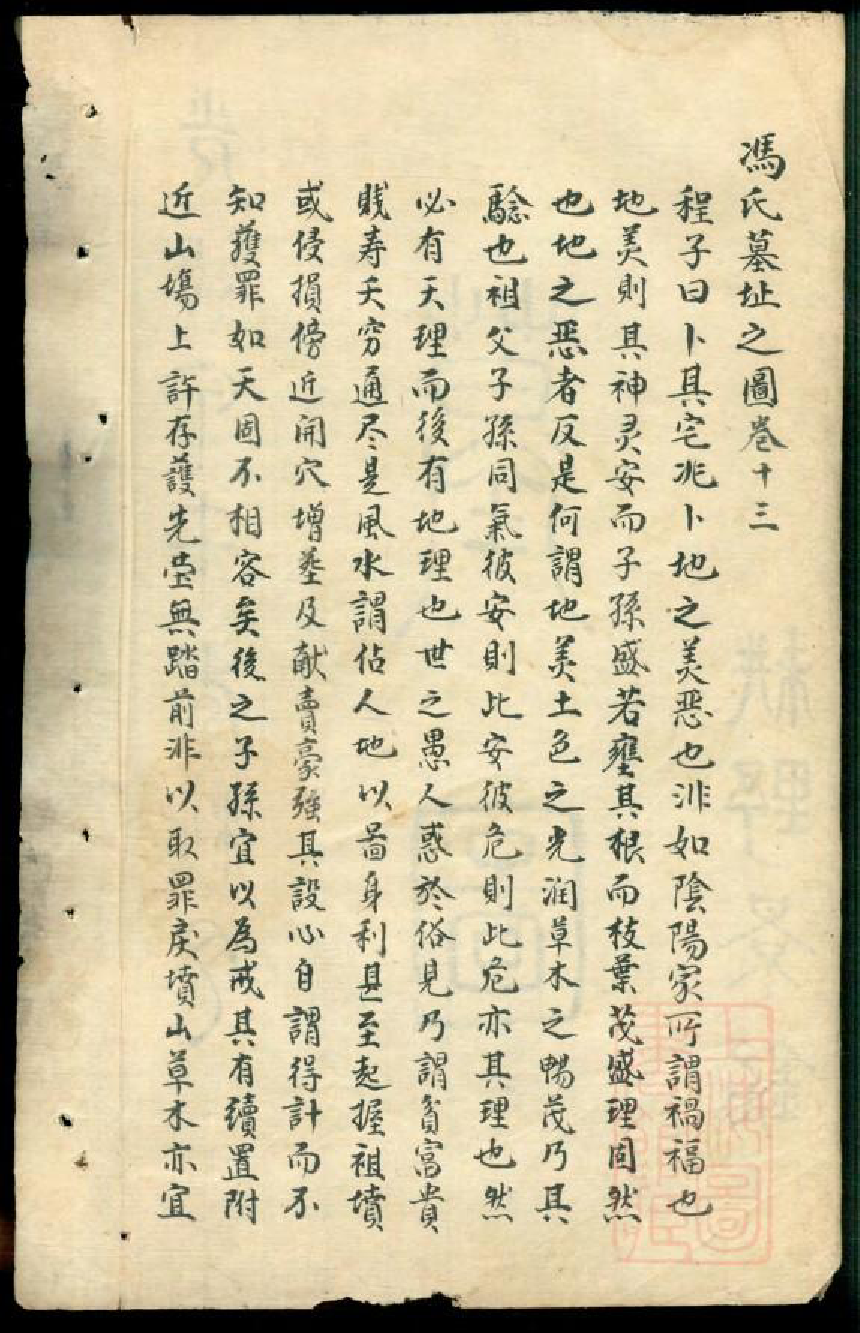 馮氏墓址之圖卷十三
程子曰卜其宅兆卜地之美惡也非如陰陽家所謂禍福也
地美則其神灵安而子孫盛若壅其根而枝葉茂盛理固然
也地之惡者反是何謂地美土色之光润草木之暢茂乃其
騐也祖父子孫同氣彼安則此安彼危則此危亦其理也然
必有天理而後有地理也世之愚人惑於俗見乃謂貧富貴
贱寿夭穷通尽是風水謂佔人地以啚身利甚至起握祖墳
或侵損傍近開穴增塟及献賣豪强其設心自謂得計而不
知獲罪如天固不相容矣後之子孫宜以為戒其有續置附
近山塲上許存護先塋無踏前非以取罪戾墳山草木亦宜